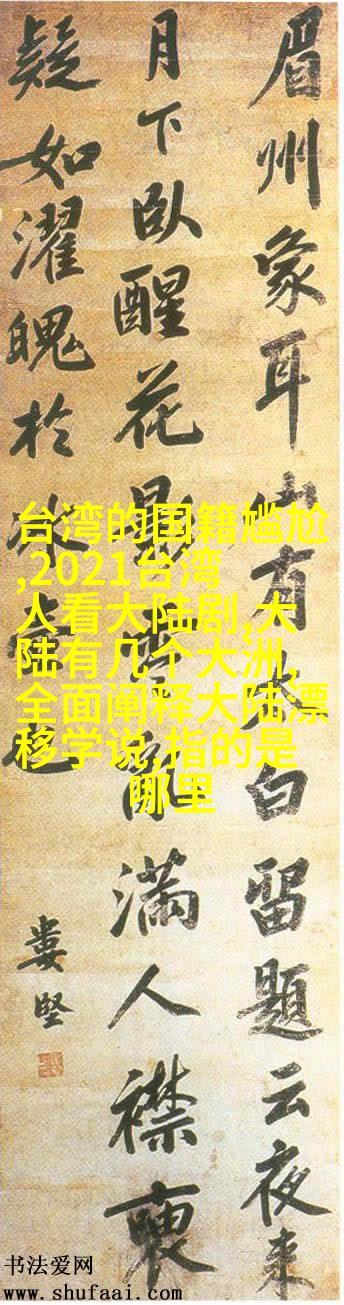 眉州象耳山有李白留題云夜來
月下臥醒花影零亂滿人襟
疑如濯魄於冰壺也
婁堅
台湾的国籍尴尬
,2021台湾
人看大陆剧,大
陆有几个大洲,
全面阐释大陆漂
移学说,指的是
哪里
书法爱网
www.shufaai.com